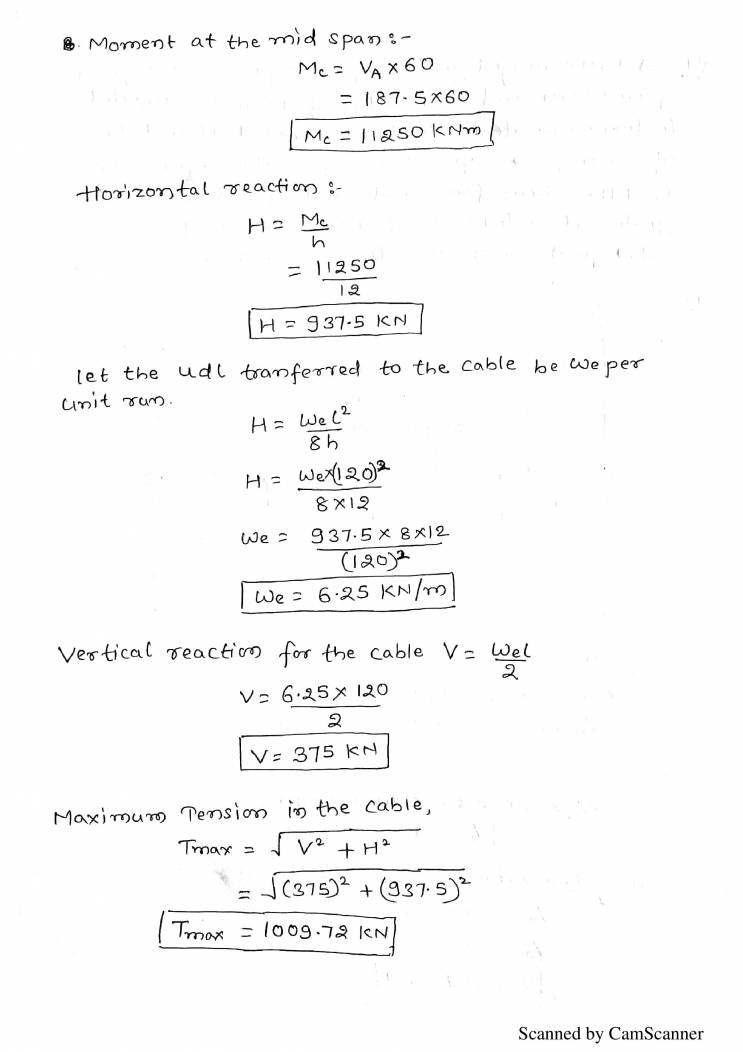 8. Moment at the mid span :-
Mc = VA x 60
= 187.5x60
Mc = 11250 KNm
Horizontal reaction :-
H = Mc/h
= 11250/12
H = 937.5 KN
let the udl tranferred to the cable be we per
unit run.
H = Wel²/8h
H = Wex(120)²/8x12
We = 937.5 x 8x12/(120)²
We = 6.25 KN/m
Vertical reaction for the cable V = Wel/2
V = 6.25 x 120/2
V = 375 KN
Maximum Tension in the cable,
Tmax = √V² + H²
= √(375)² + (937.5)²
Tmax = 1009.72 KN
Scanned by CamScanner